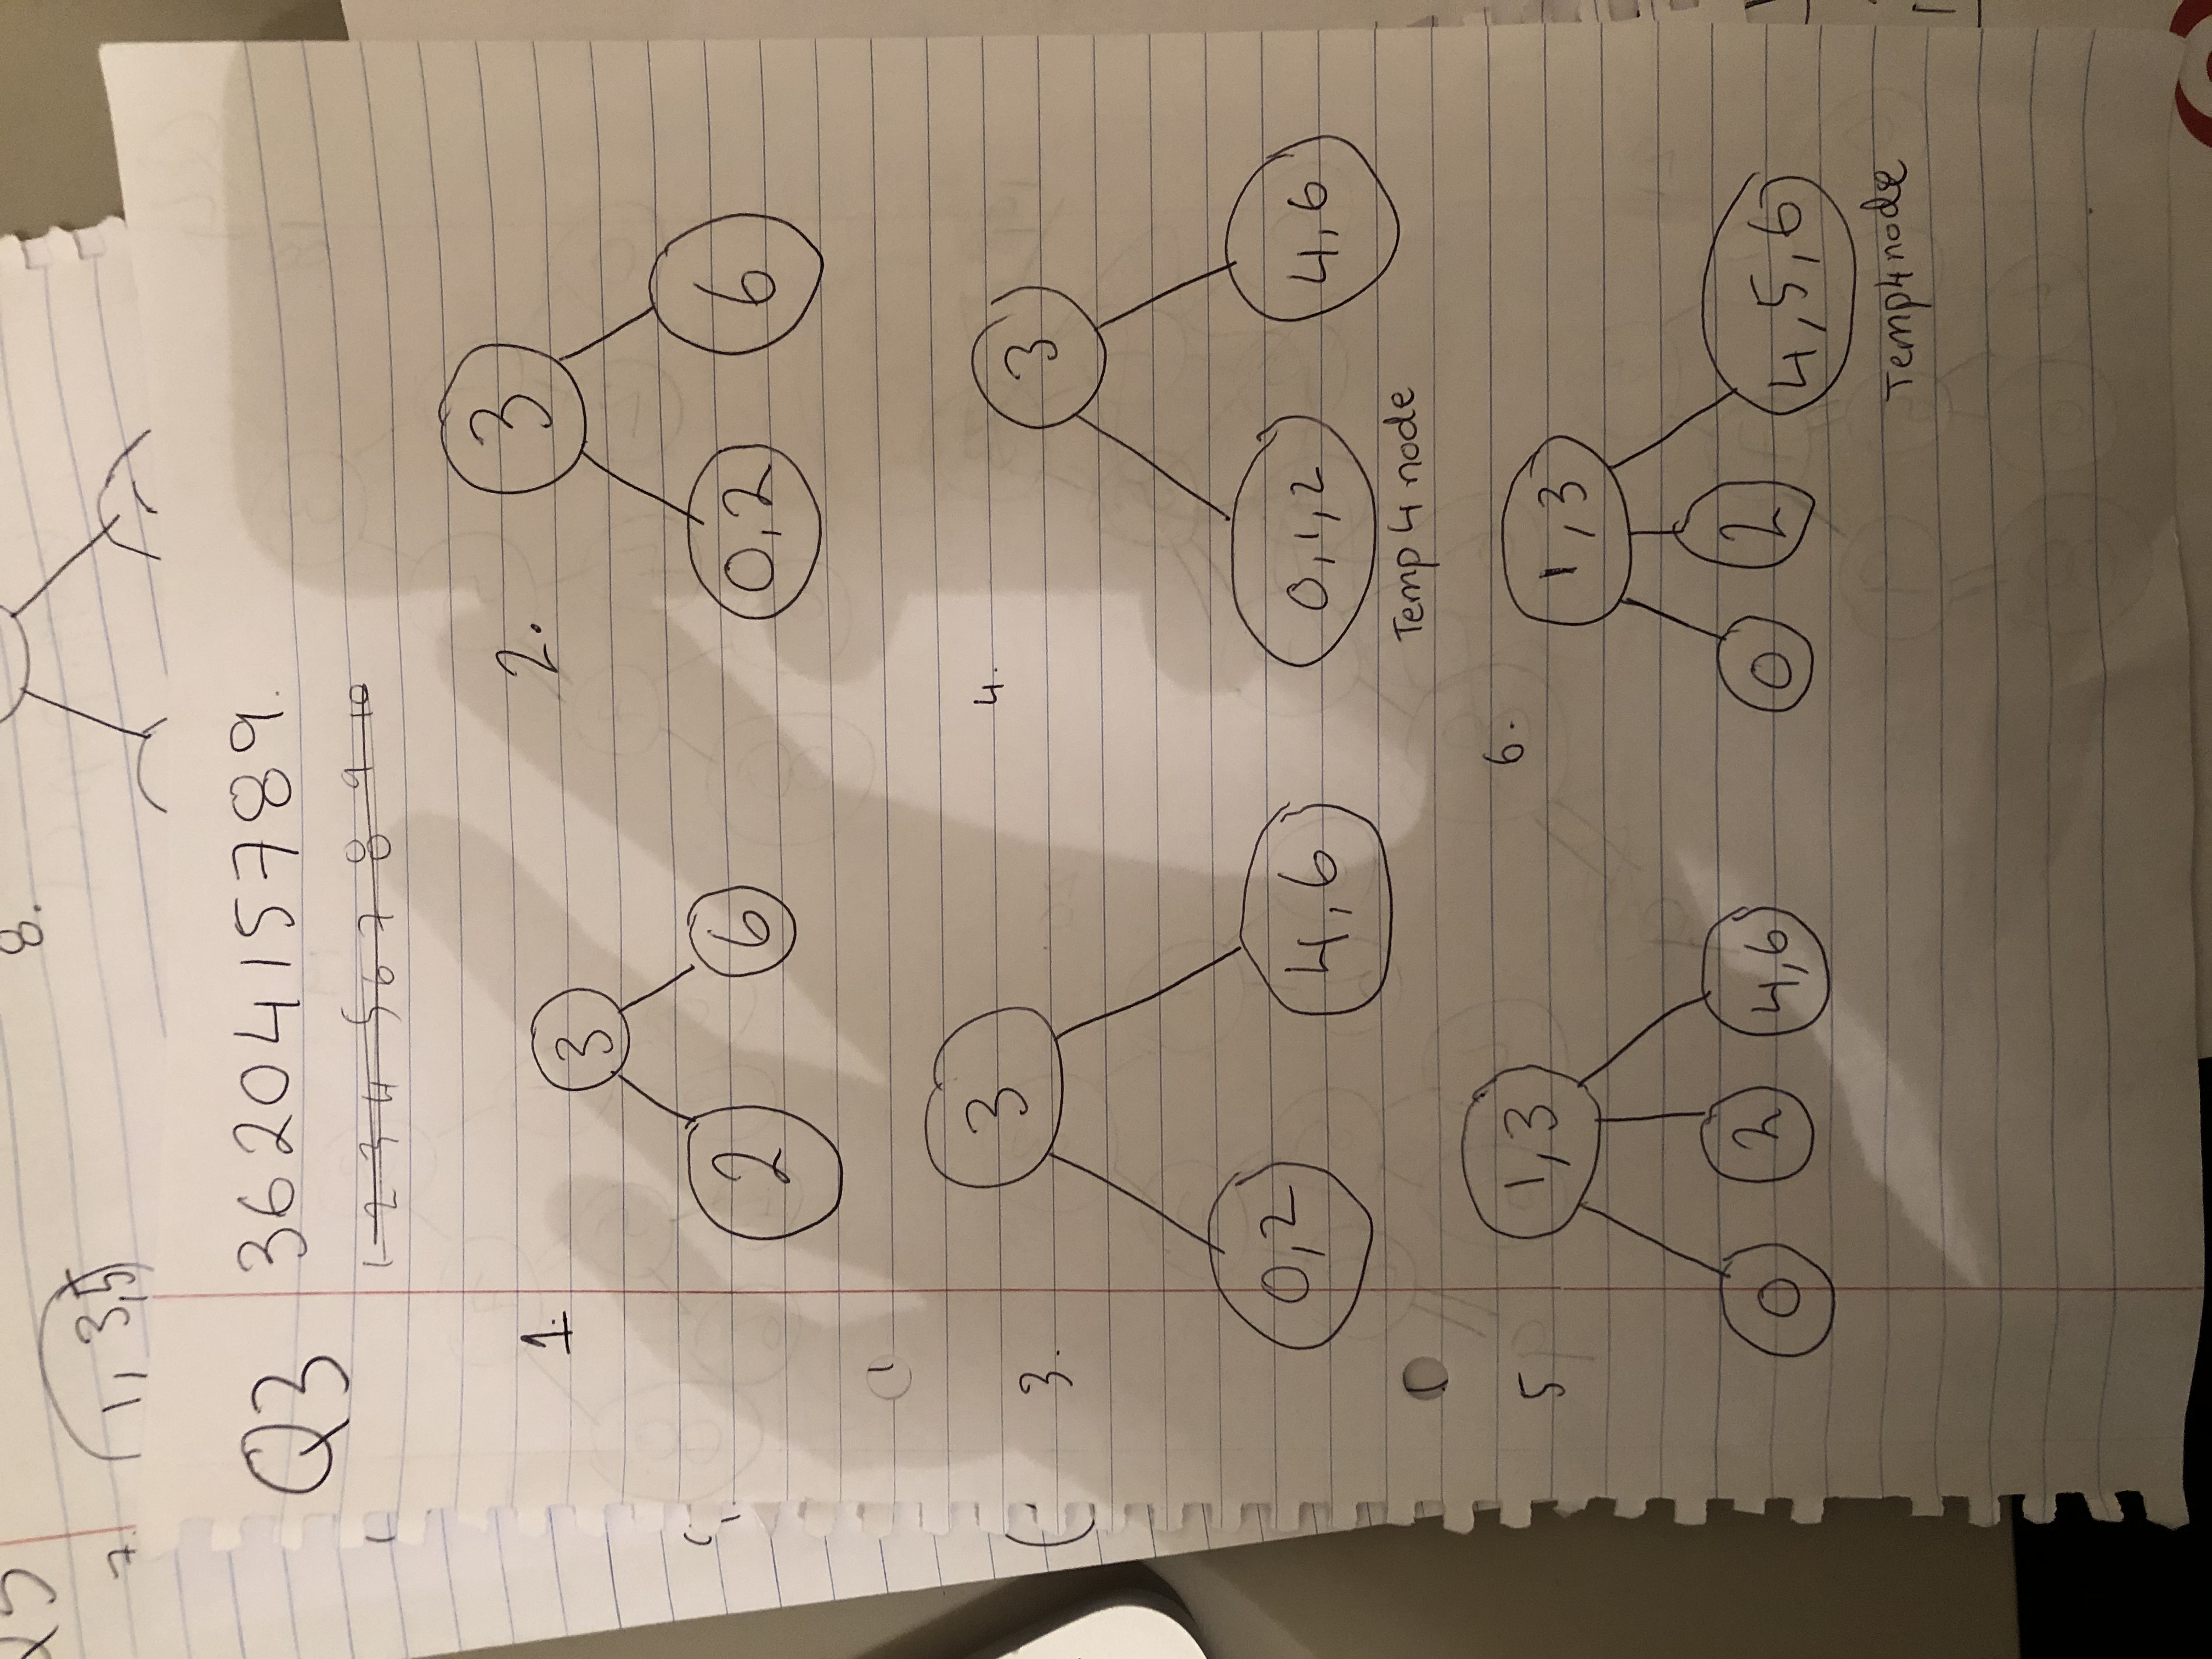 Q5
8.
7. 1, 3,5
Q3 3620415789.
1 2 3 4 5 6 7 8 9 10
1. 3
2 6
2. 3
0,2 6
3. 3
0,2 4,6
4. 3
0,1,2 4,6
Temp 4 node
5 1,3
0 2 4,6
6. 1,3
0 2 4,5,6
Temp 4 node